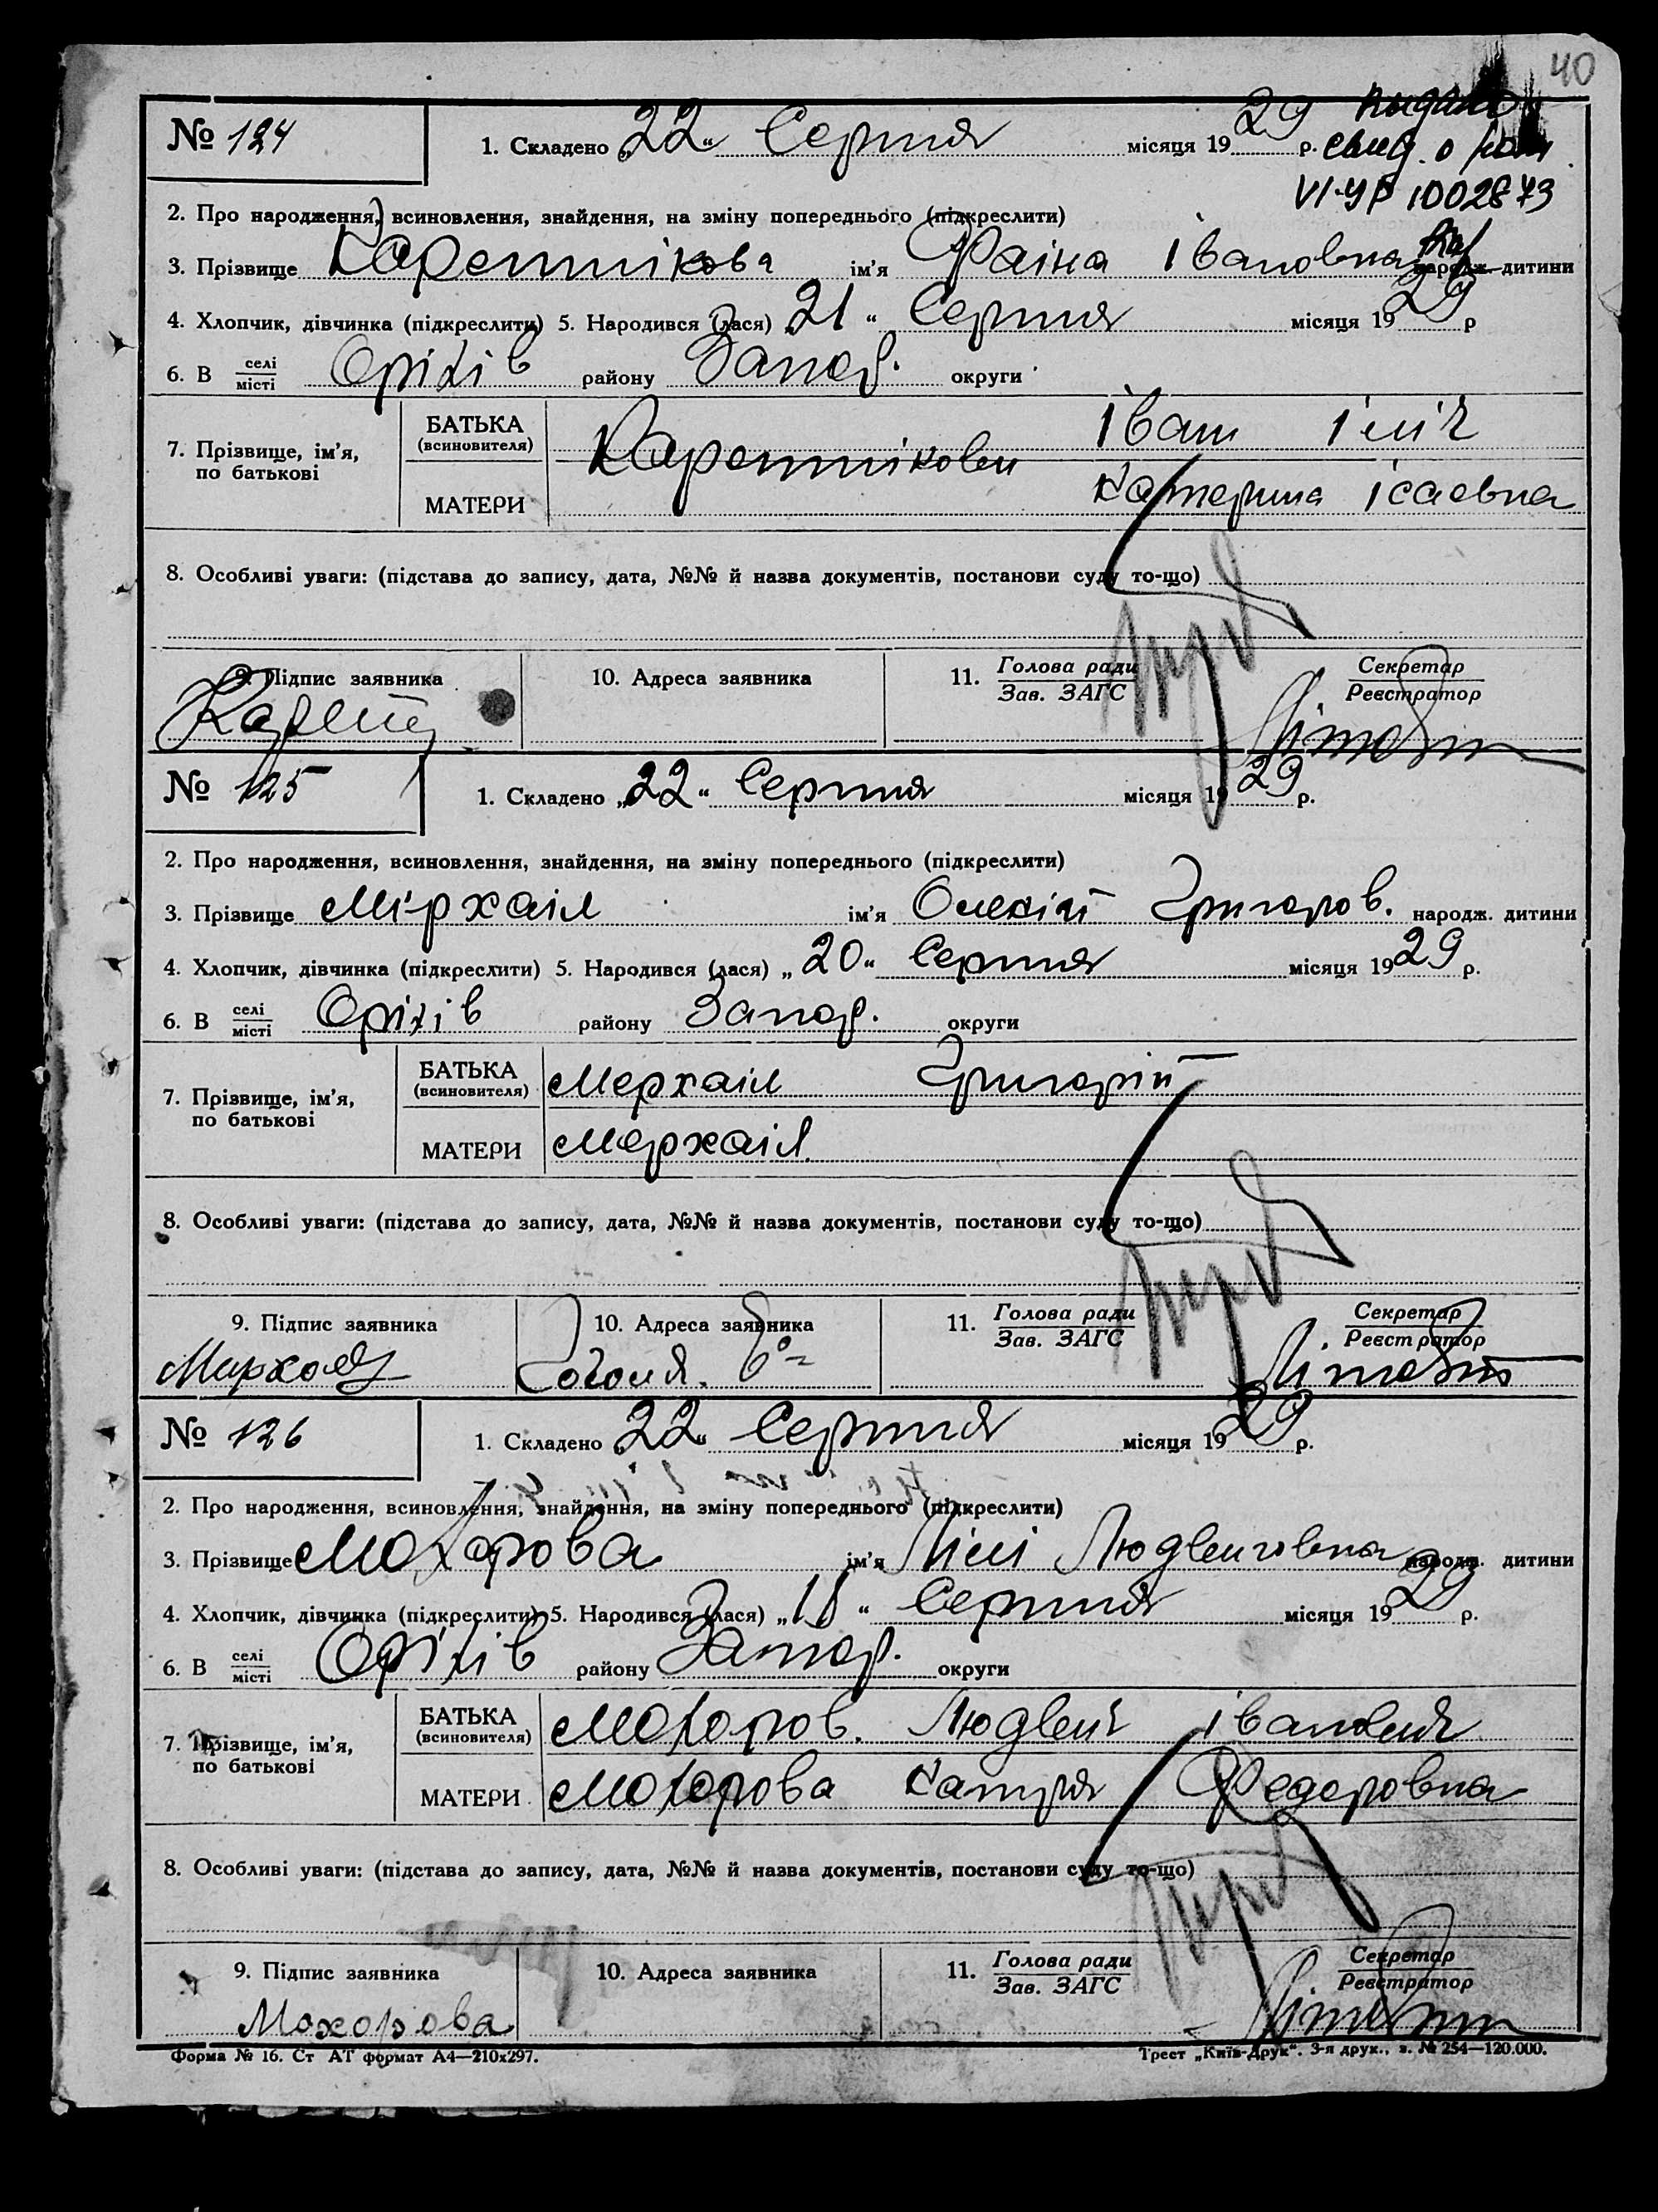 40
№ 124
1. Складено „22“ Серпня місяця 1929 р.
свид. о
VI-УР 1002873
2. Про народження, всиновлення, знайдення, на зміну попереднього (підкреслити)
3. Прізвище Каретнікова ім'я Фаіна Івановна народж. дитини
4. Хлопчик, дівчинка (підкреслити) 5. Народився (лася) „21“ Серпня місяця 1929 р
6. В селі місті Оріхів району Запор. округи
7. Прізвище, ім'я, по батькові
БАТЬКА (всиновителя) Іван Іліч
Каретнікови
МАТЕРИ Катерина Ісаевна
8. Особливі уваги: (підстава до запису, дата, №№ й назва документів, постанови суду то-що)
9. Підпис заявника 10. Адреса заявника 11. Голова ради Зав. ЗАГС Секретар Реєстратор
№ 125
1. Складено „22“ Серпня місяця 1929 р.
2. Про народження, всиновлення, знайдення, на зміну попереднього (підкреслити)
3. Прізвище Мірхаіл ім'я Олексій Григоров. народж. дитини
4. Хлопчик, дівчинка (підкреслити) 5. Народився (лася) „20“ Серпня місяця 1929 р.
6. В селі місті Оріхів району Запор. округи
7. Прізвище, ім'я, по батькові
БАТЬКА (всиновителя) Мерхаіл Григорій
МАТЕРИ Мерхаіл
8. Особливі уваги: (підстава до запису, дата, №№ й назва документів, постанови суду то-що)
9. Підпис заявника 10. Адреса заявника 11. Голова ради Зав. ЗАГС Секретар Реєстратор
Гоголя
№ 126
1. Складено „22“ Серпня місяця 1929 р.
2. Про народження, всиновлення, знайдення, на зміну попереднього (підкреслити)
3. Прізвище Мохорова ім'я Лілі Людвиговна народж. дитини
4. Хлопчик, дівчинка (підкреслити) 5. Народився (лася) „18“ Серпня місяця 1929 р.
6. В селі місті Оріхів району Запор. округи
7. Прізвище, ім'я, по батькові
БАТЬКА (всиновителя) Мохоров. Людвиг Іванович
МАТЕРИ Мохорова Катря Федоровна
8. Особливі уваги: (підстава до запису, дата, №№ й назва документів, постанови суду то-що)
9. Підпис заявника 10. Адреса заявника 11. Голова ради Зав. ЗАГС Секретар Реєстратор
Мохорова
Форма № 16. Ст АТ формат А4—210x297.
Трест „Київ-Друк“. 3-я друк., з. № 254—120.000.